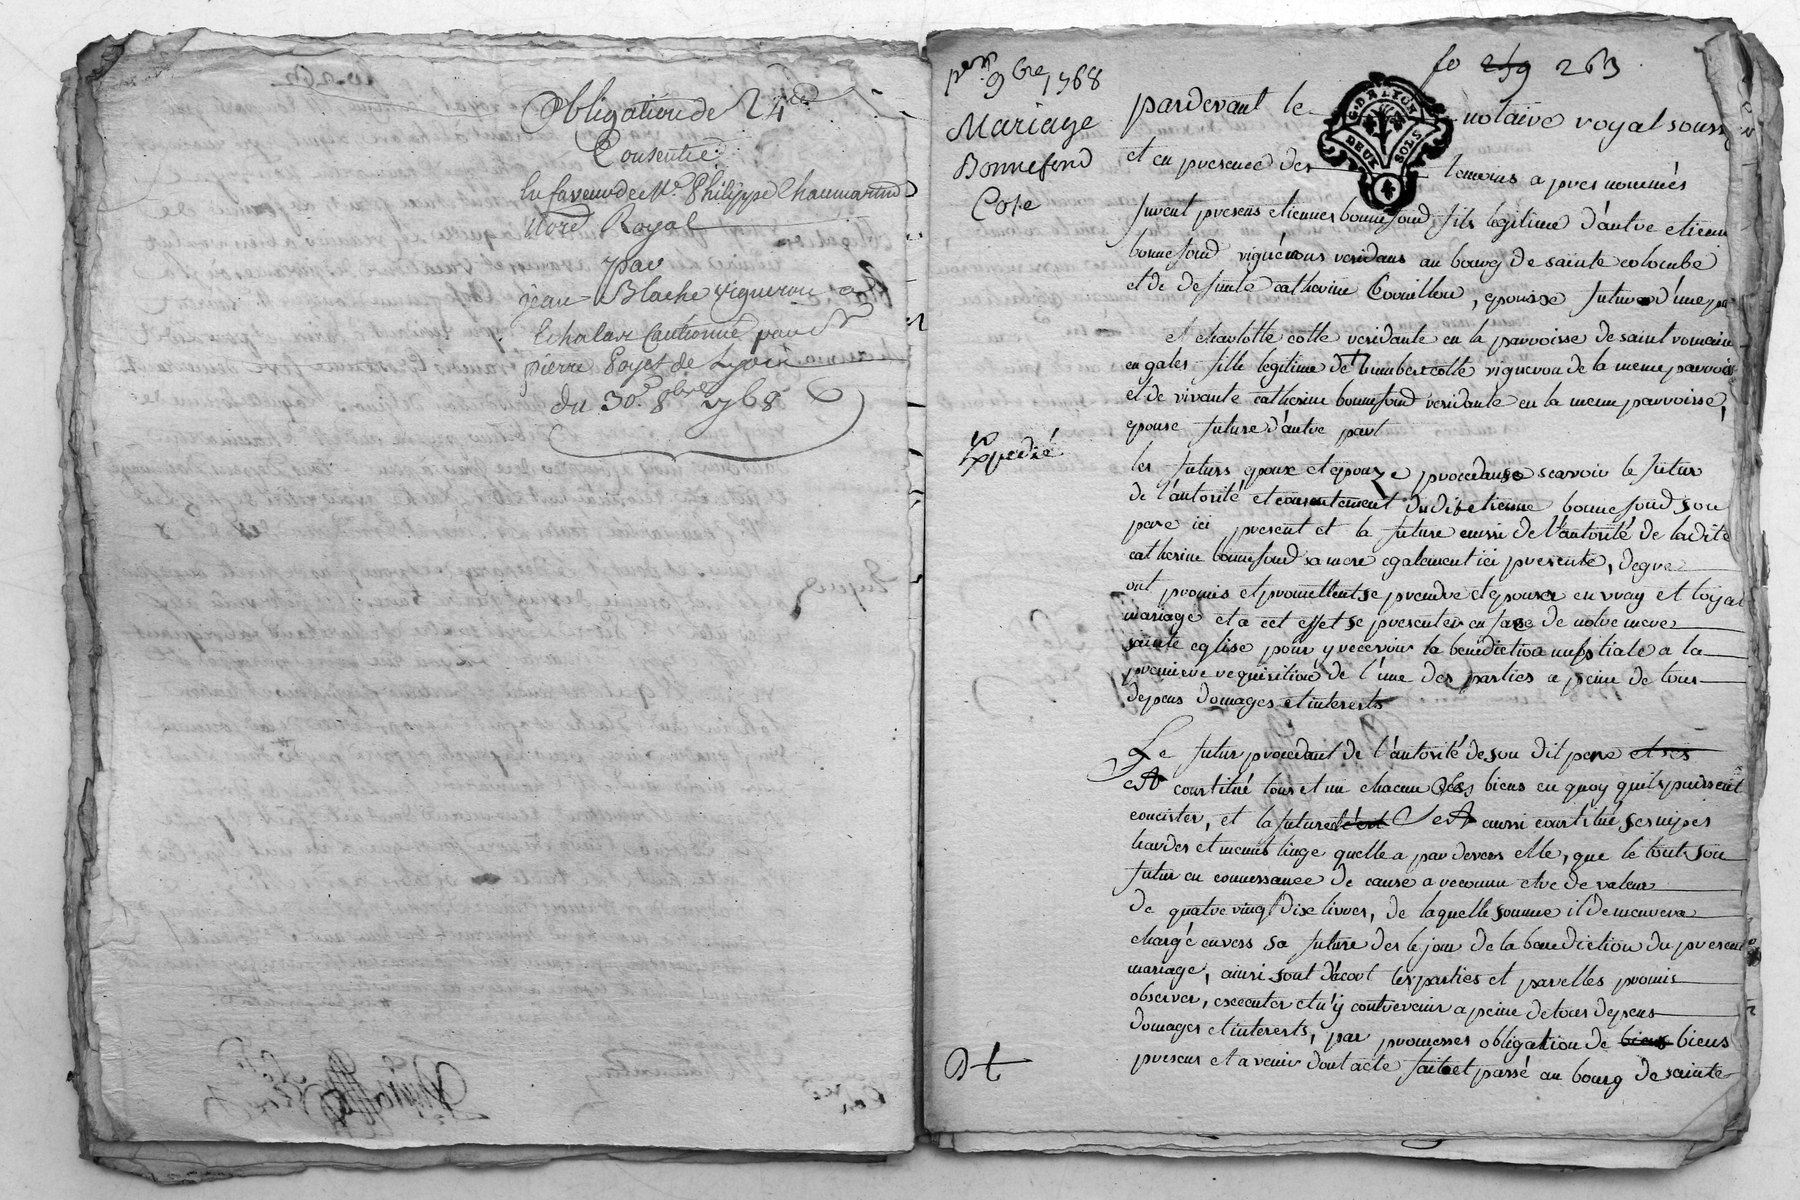 Obligation de 24
Consentie
En faveur de Me Philippe Chaumartin
Nore Royal
par
jean Blache vigneron a
Echalas Cautionné par
pierre Poyet de Lyon
du 30e 8bre 1768
fo 259 263
per 9bre 1768
Mariage
Bonnefond
Cote
Expedié
G. D. LYON
DEUX SOLS
4
pardevant le notaire royal souss
et en presence des temoins apres nommés
furent presens etienne bonnefond fils legitime d'autre etienne
bonnefond vignerons residans au bourg de sainte colombe
et de defunte catherine , epoux futur d'une part
et charlotte cotte residante en la parroisse de saint romain
en gales fille legitime de humbert cotte vigneron de la meme parroisse
et de vivante catherine bonnefond residante en la meme parroisse,
epouse future d'autre part
les futurs epoux et epouze procedans scavoir le futur
de l'autorité et consentement dudit etienne bonnefond son
pere ici present et la future aussi de l'autorité de ladite
catherine bonnefond sa mere egalement ici presente, de gre
ont promis et promettent se prendre et epouser en vray et loyal
mariage et a cet effet se presenter en face de notre mere
sainte eglise pour y recevoir la benediction nuptiale a la
premiere requisition de l'une des parties a peine de tous
depens domages et interests
Le futur procedant de l'autorité de son dit pere et ses
est constitué tous et un chacun ses biens en quoy qu'ils puissent
concister, et la future s'est aussi constitué ses nipes
hardes et menus linge quelle a par devers elle, que le tout son
futur en connessance de cause a reconnu etre de valeur
de quatre vingt dix livres, de laquelle somme il demeurera
chargé envers sa future des le jour de la benediction du present
mariage, ainsi sont d'acort les parties et par elles promis
observer, executer et n'y contrevenir a peine de tous depens
domages et interests, par promesses obligation de biens biens
presens et avenir dont acte fait et passé au bourg de sainte